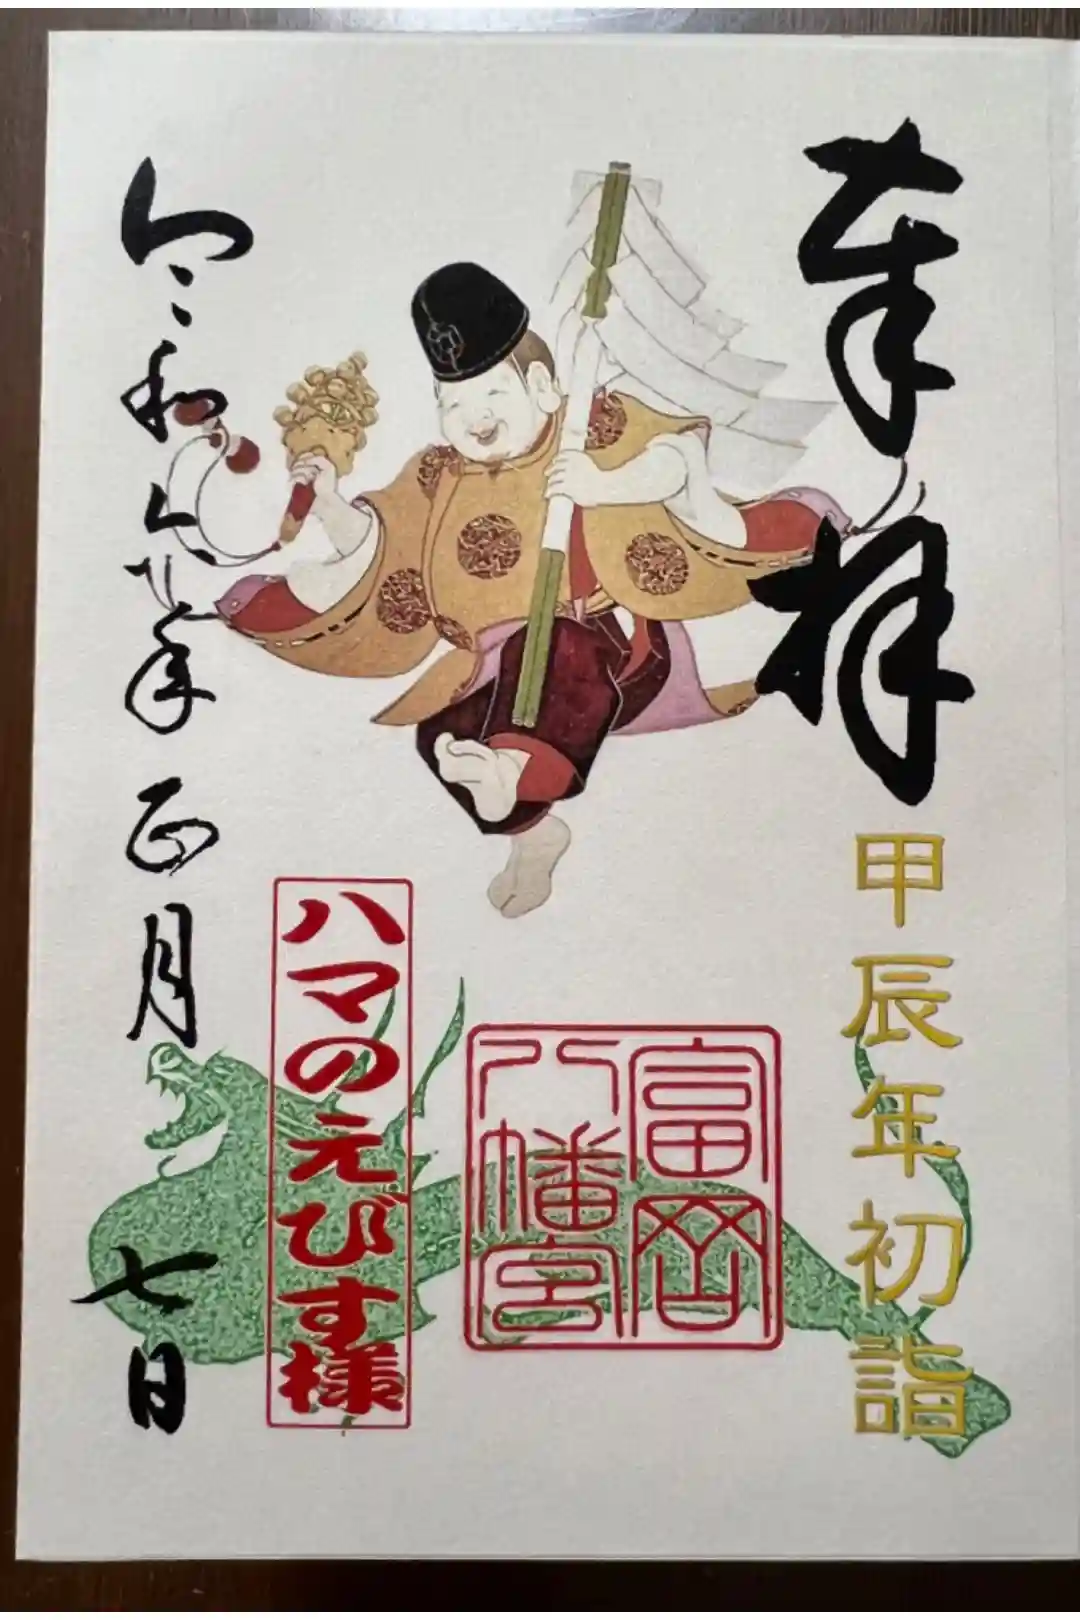 奉拝
甲辰年初詣
富岡
八幡宮
ハマのえびす様
令和六年正月七日